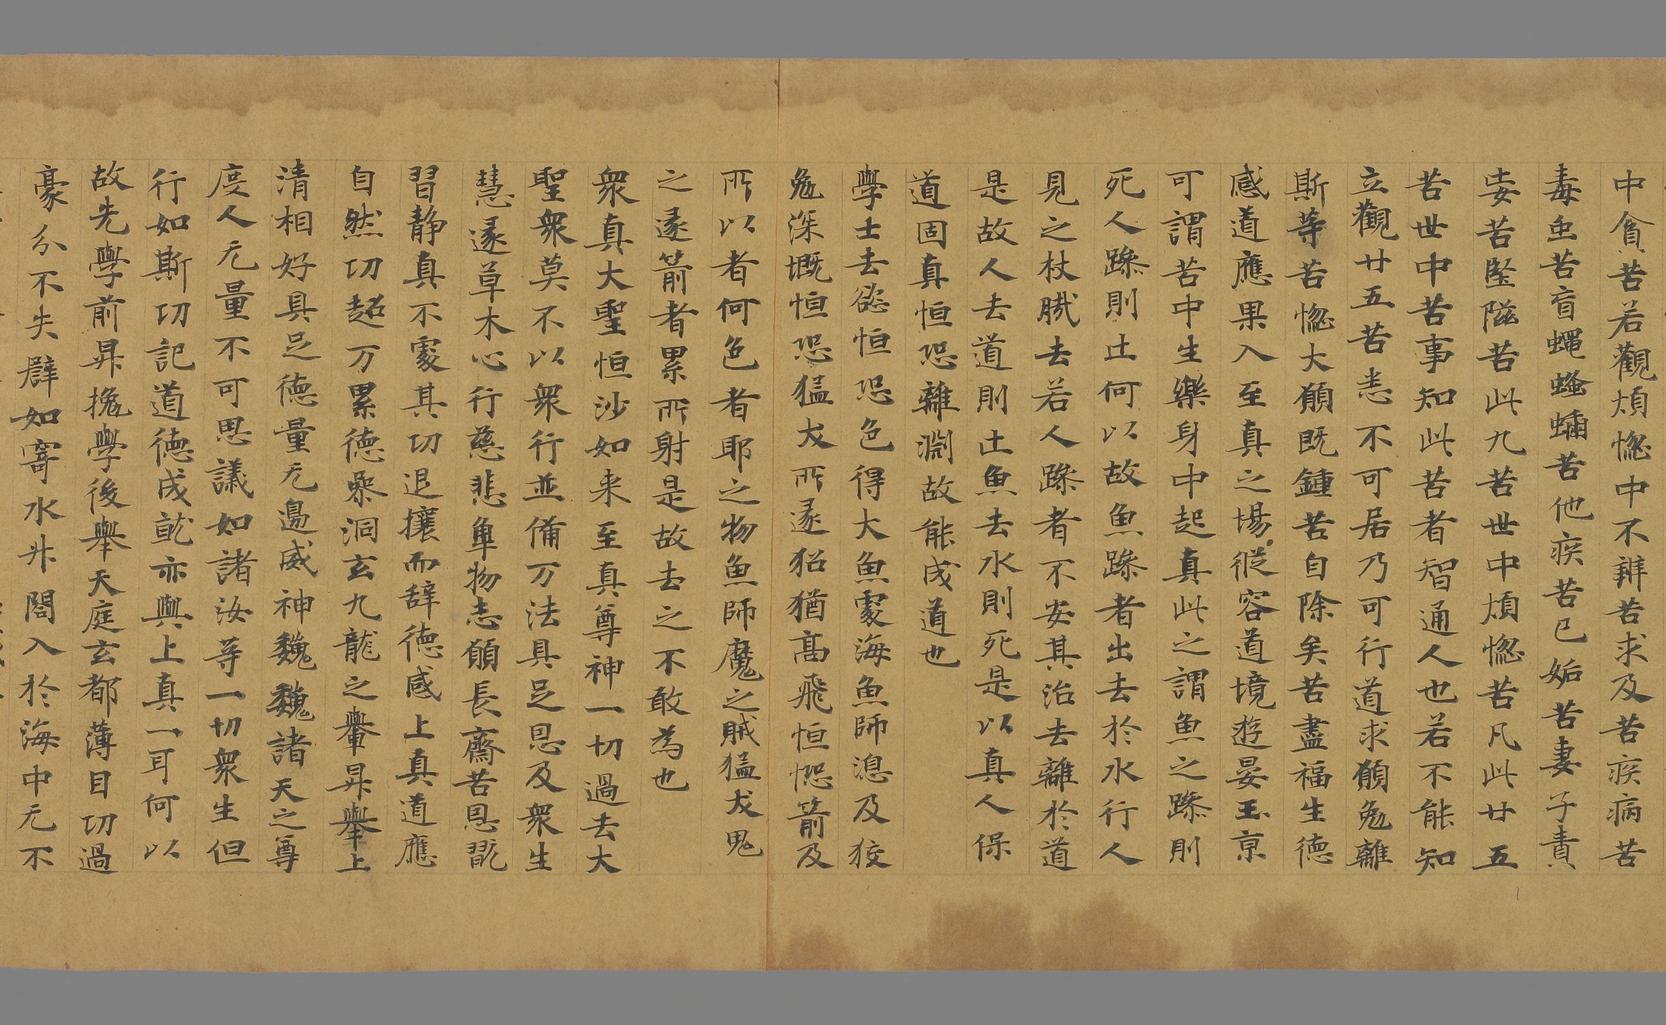 中貧苦若觀煩惚中不辨苦求及苦疾病苦
毒虫苦盲蠅蛩蟎苦他疾苦已妬苦妻子責
妾苦墜隘苦此九苦世中煩惚苦凡此廿五
苦世中苦事知此苦者智通人也若不能知
立觀廿五苦悉不可居乃可行道求願兔離
斯等苦惚大願既鍾苦自除矣苦盡福生德
感道應果入至真之場從容道境遊晏玉京
可謂苦中生樂身中起真此之謂魚之躁則
死人躁則止何以故魚躁者出去於水行人
見之杖𢧵去若人躁者不安其治去離於道
是故人去道則止魚去水則死是以真人保
道固真恒恐離渕故能成道也
學士去慾恒恐色得大魚處海魚師湣及狡
兔深慨恒恐猛犬所逐猕猶高飛恒惚箭及
所以者何色者耶之物魚師魔之賊猛犬鬼
之逐箭者累所射是故去之不敢為也
衆真大聖恒沙如来至真尊神一切過去大
聖衆莫不以衆行並備万法具足恩及衆生
慧逐草木心行慈悲隼物志願長齋苦恩翫
習静真不處其功退攘而辞德感上真道應
自然功超万累德㬪洞玄九龍之轝昇舉上
清相好具足德量无邊威神巍巍諸天之尊
度人无量不可思議如諸汝等一切衆生但
行如斯功記道德成就亦與上真一可何以
故先學前昇挽學後舉天庭玄都薄目功過
豪分不失譬如寄水升閣入於海中无不